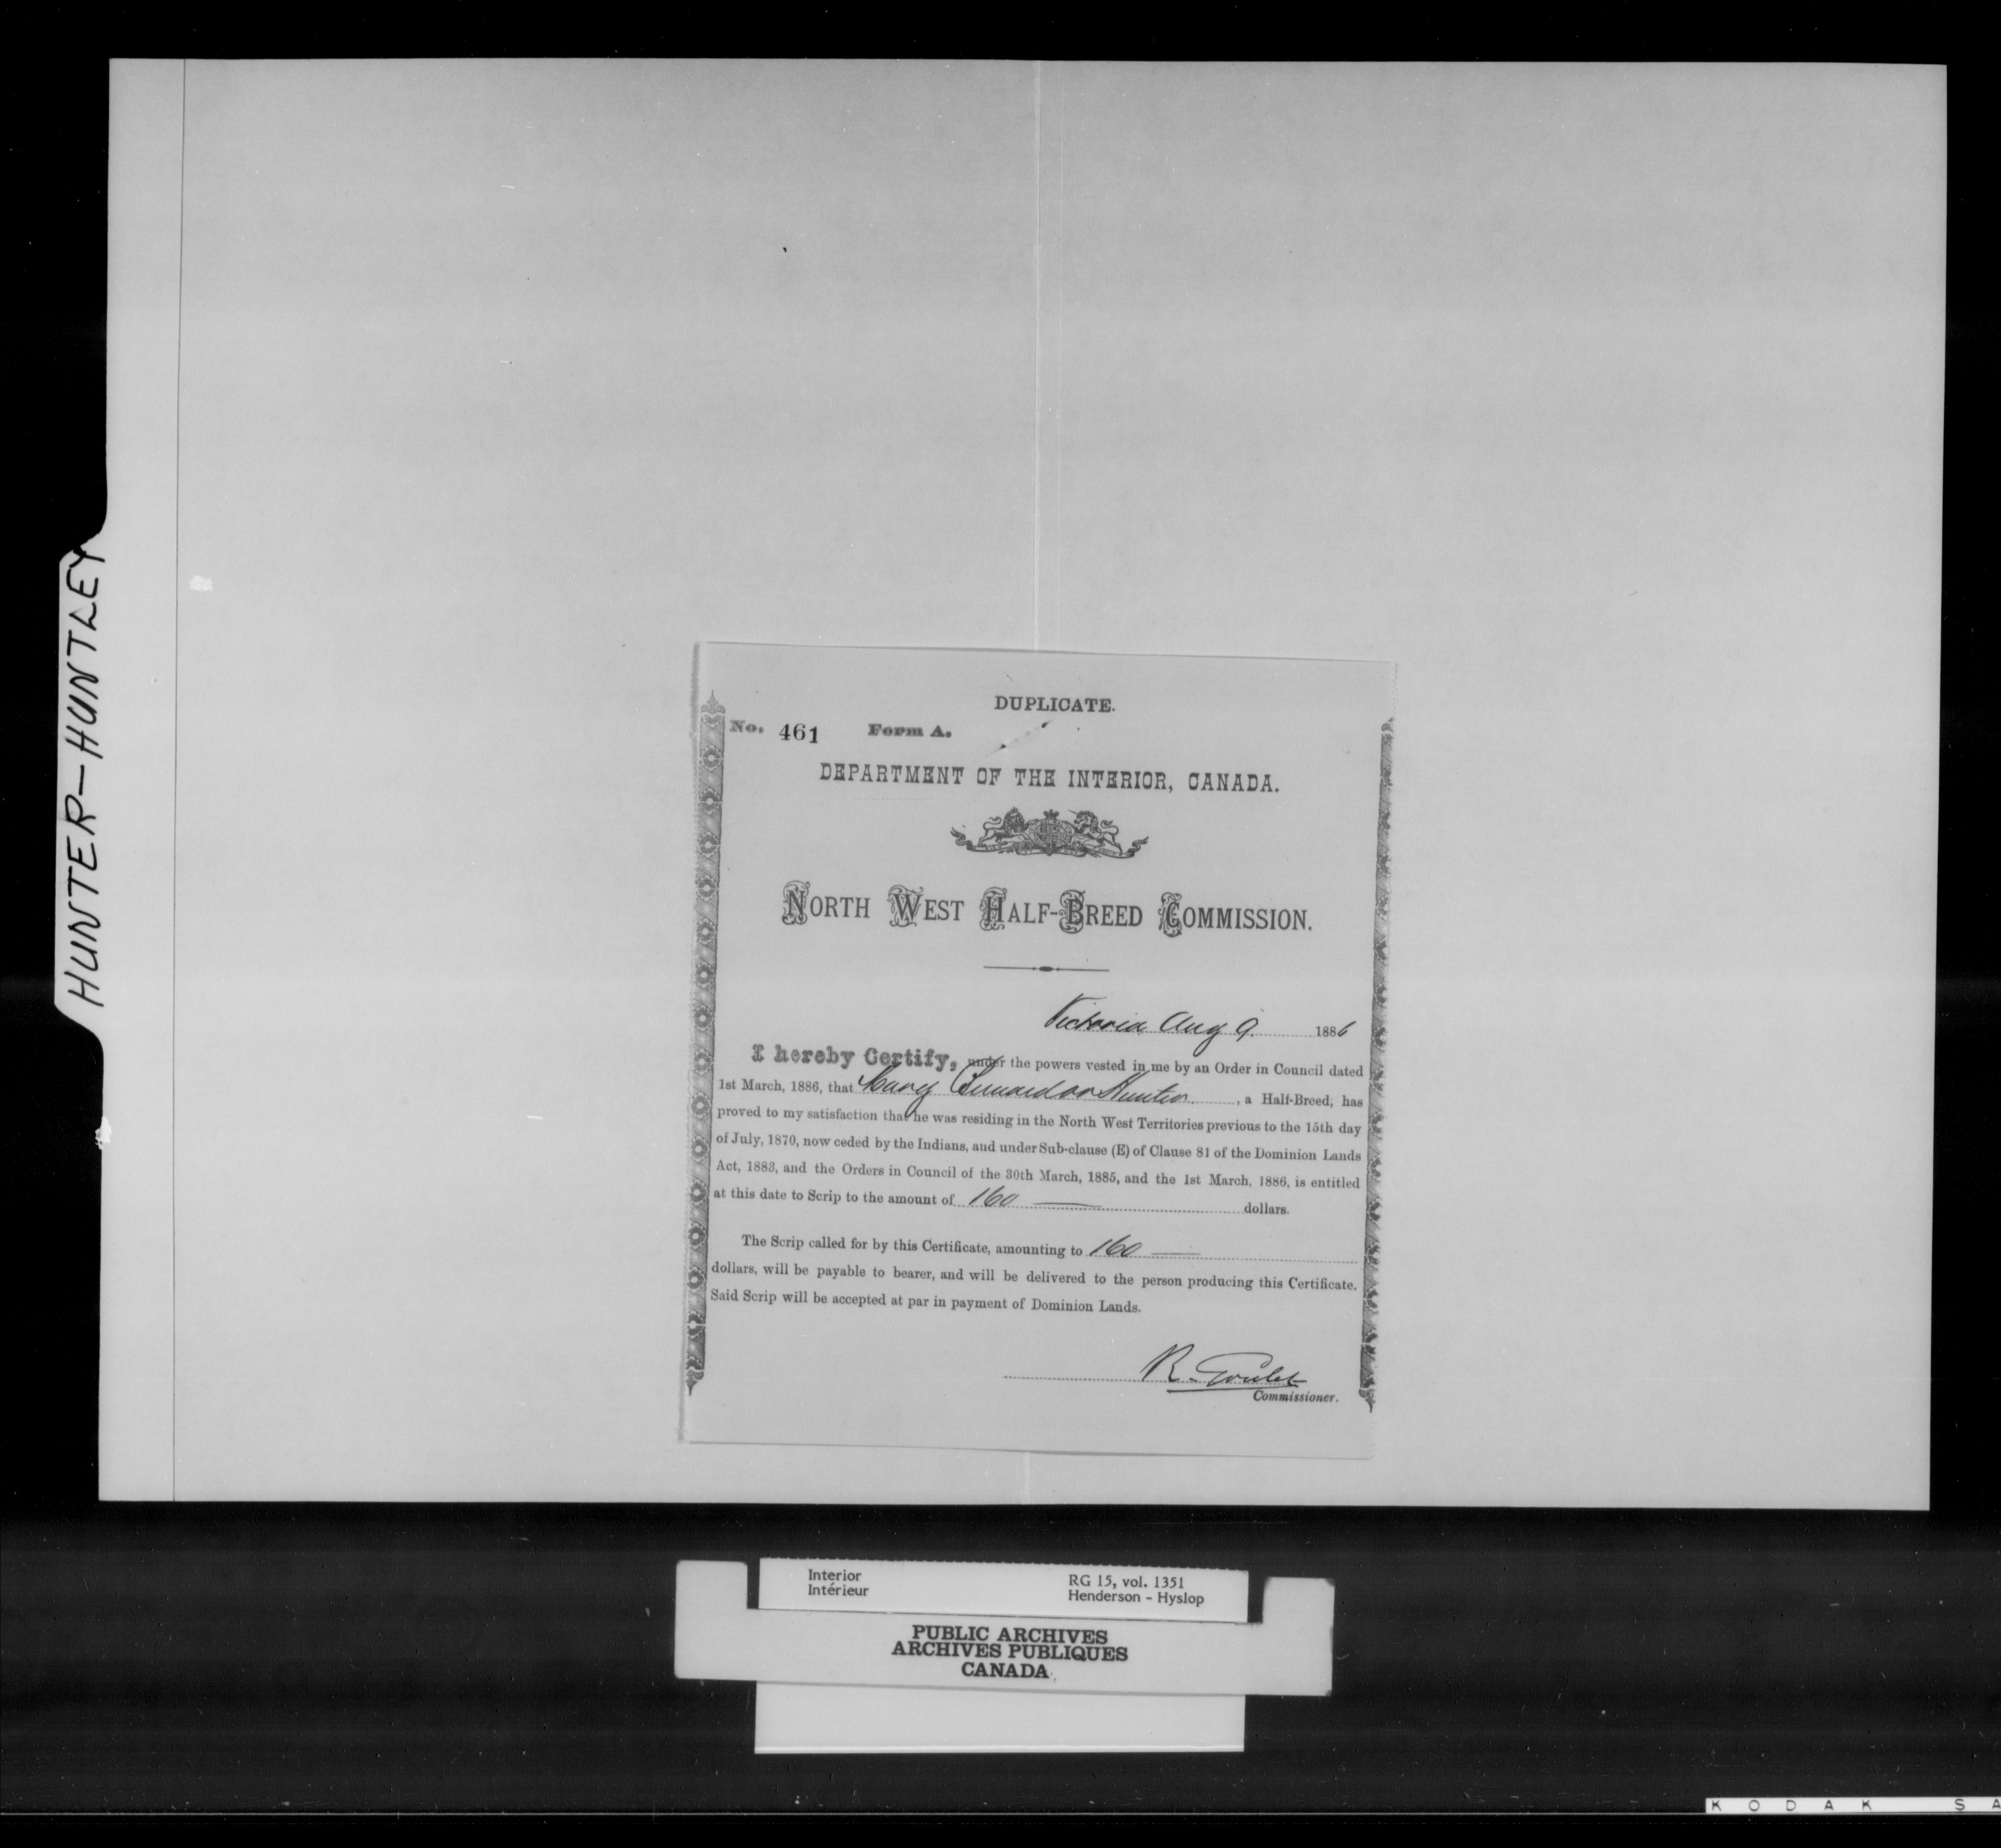 HUNTER-HUNTLEY
DUPLICATE.
No. 461 Form A.
DEPARTMENT OF THE INTERIOR, CANADA.
NORTH WEST HALF-BREED COMMISSION.
Victoria Aug 9 1886
I hereby Certify, under the powers vested in me by an Order in Council dated
1st March, 1886, that Mary Bernard or Hunter, a Half-Breed, has
proved to my satisfaction that he was residing in the North West Territories previous to the 15th day
of July, 1870, now ceded by the Indians, and under Sub-clause (E) of Clause 81 of the Dominion Lands
Act, 1883, and the Orders in Council of the 30th March, 1885, and the 1st March, 1886, is entitled
at this date to Scrip to the amount of 160 — dollars.
The Scrip called for by this Certificate, amounting to 160 —
dollars, will be payable to bearer, and will be delivered to the person producing this Certificate.
Said Scrip will be accepted at par in payment of Dominion Lands.
R. Goulet
Commissioner.
Interior RG 15, vol. 1351
Intérieur Henderson - Hyslop
PUBLIC ARCHIVES
ARCHIVES PUBLIQUES
CANADA
KODAK SA